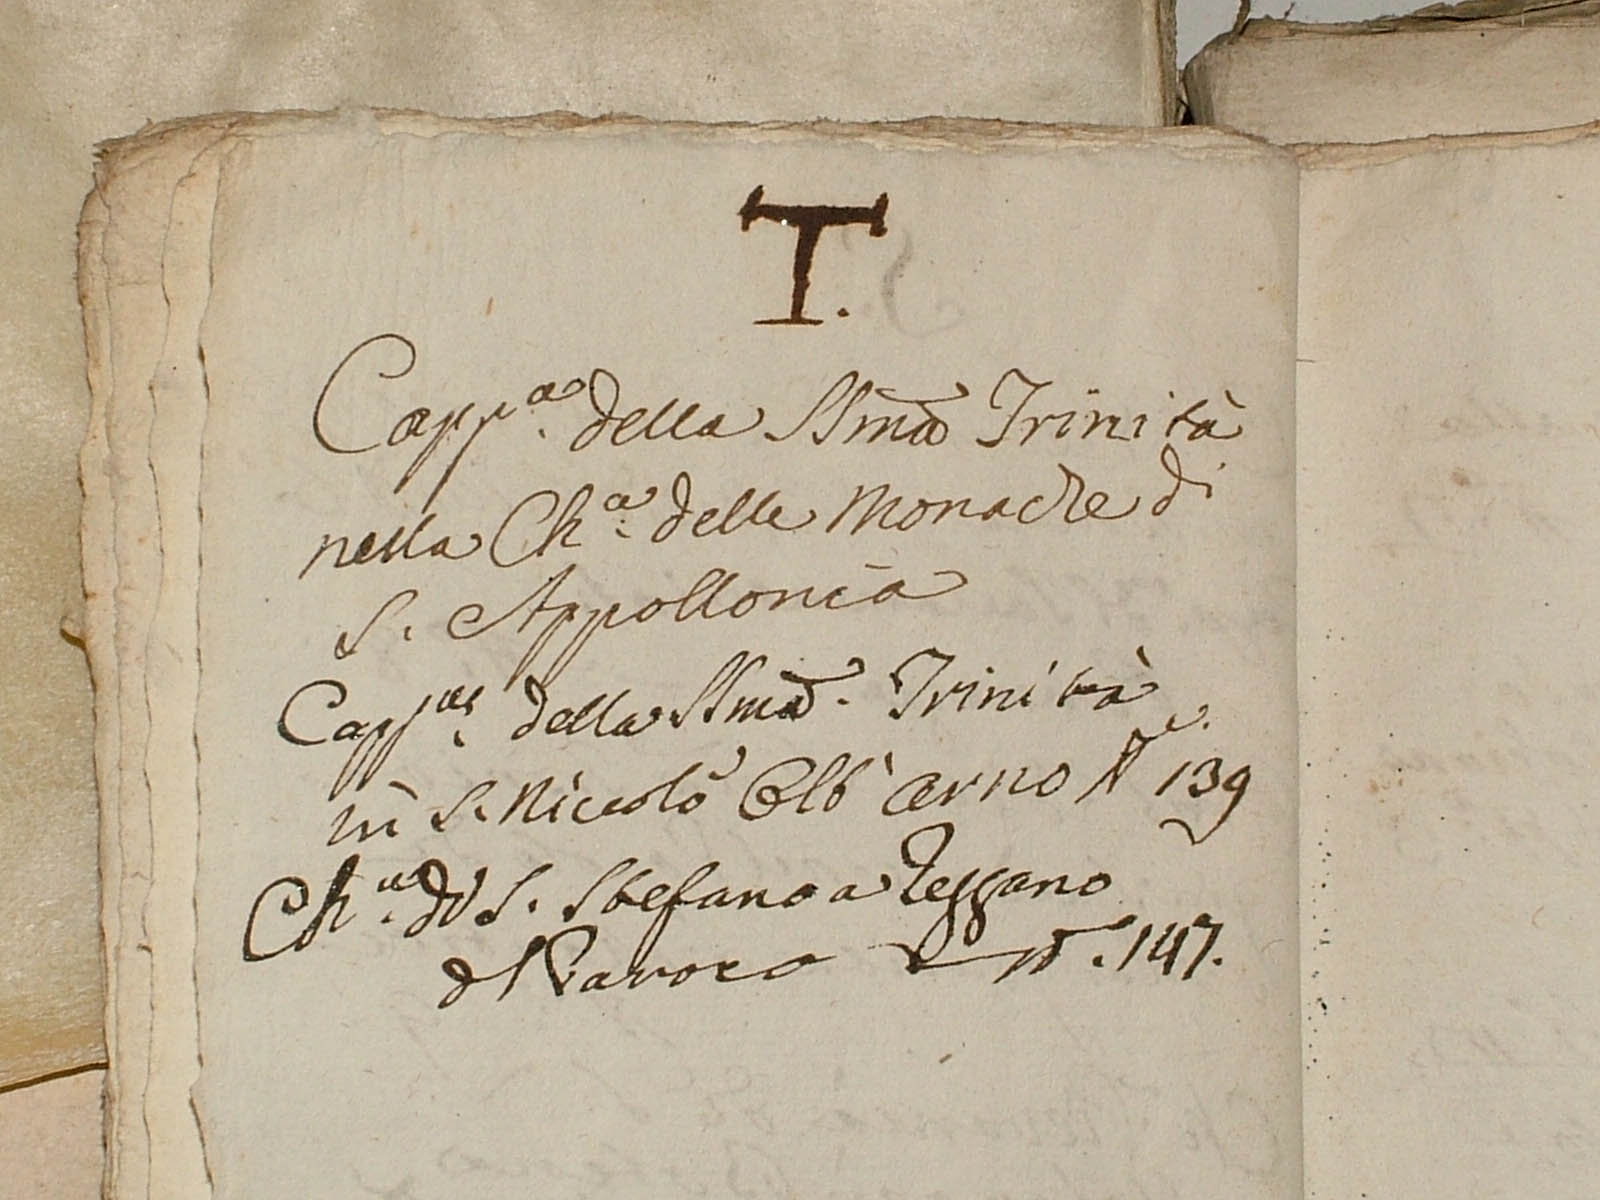 T.
Capp.a della SSma Trinità
nella Ch.a delle Monache di
S. Appollonia
Capp.a della SSma. Trinità
in S. Niccolò Olt'arno 139
Ch.a di S. Stefano a
147.